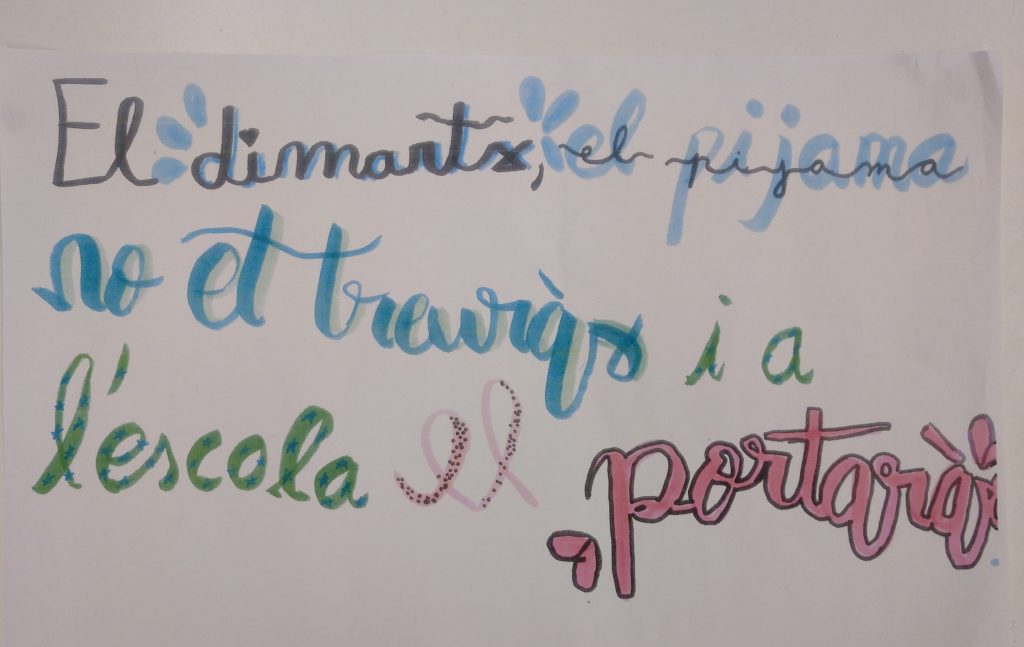 El dimarts, el pijama
no et treuràs i a
l'escola el portaràs